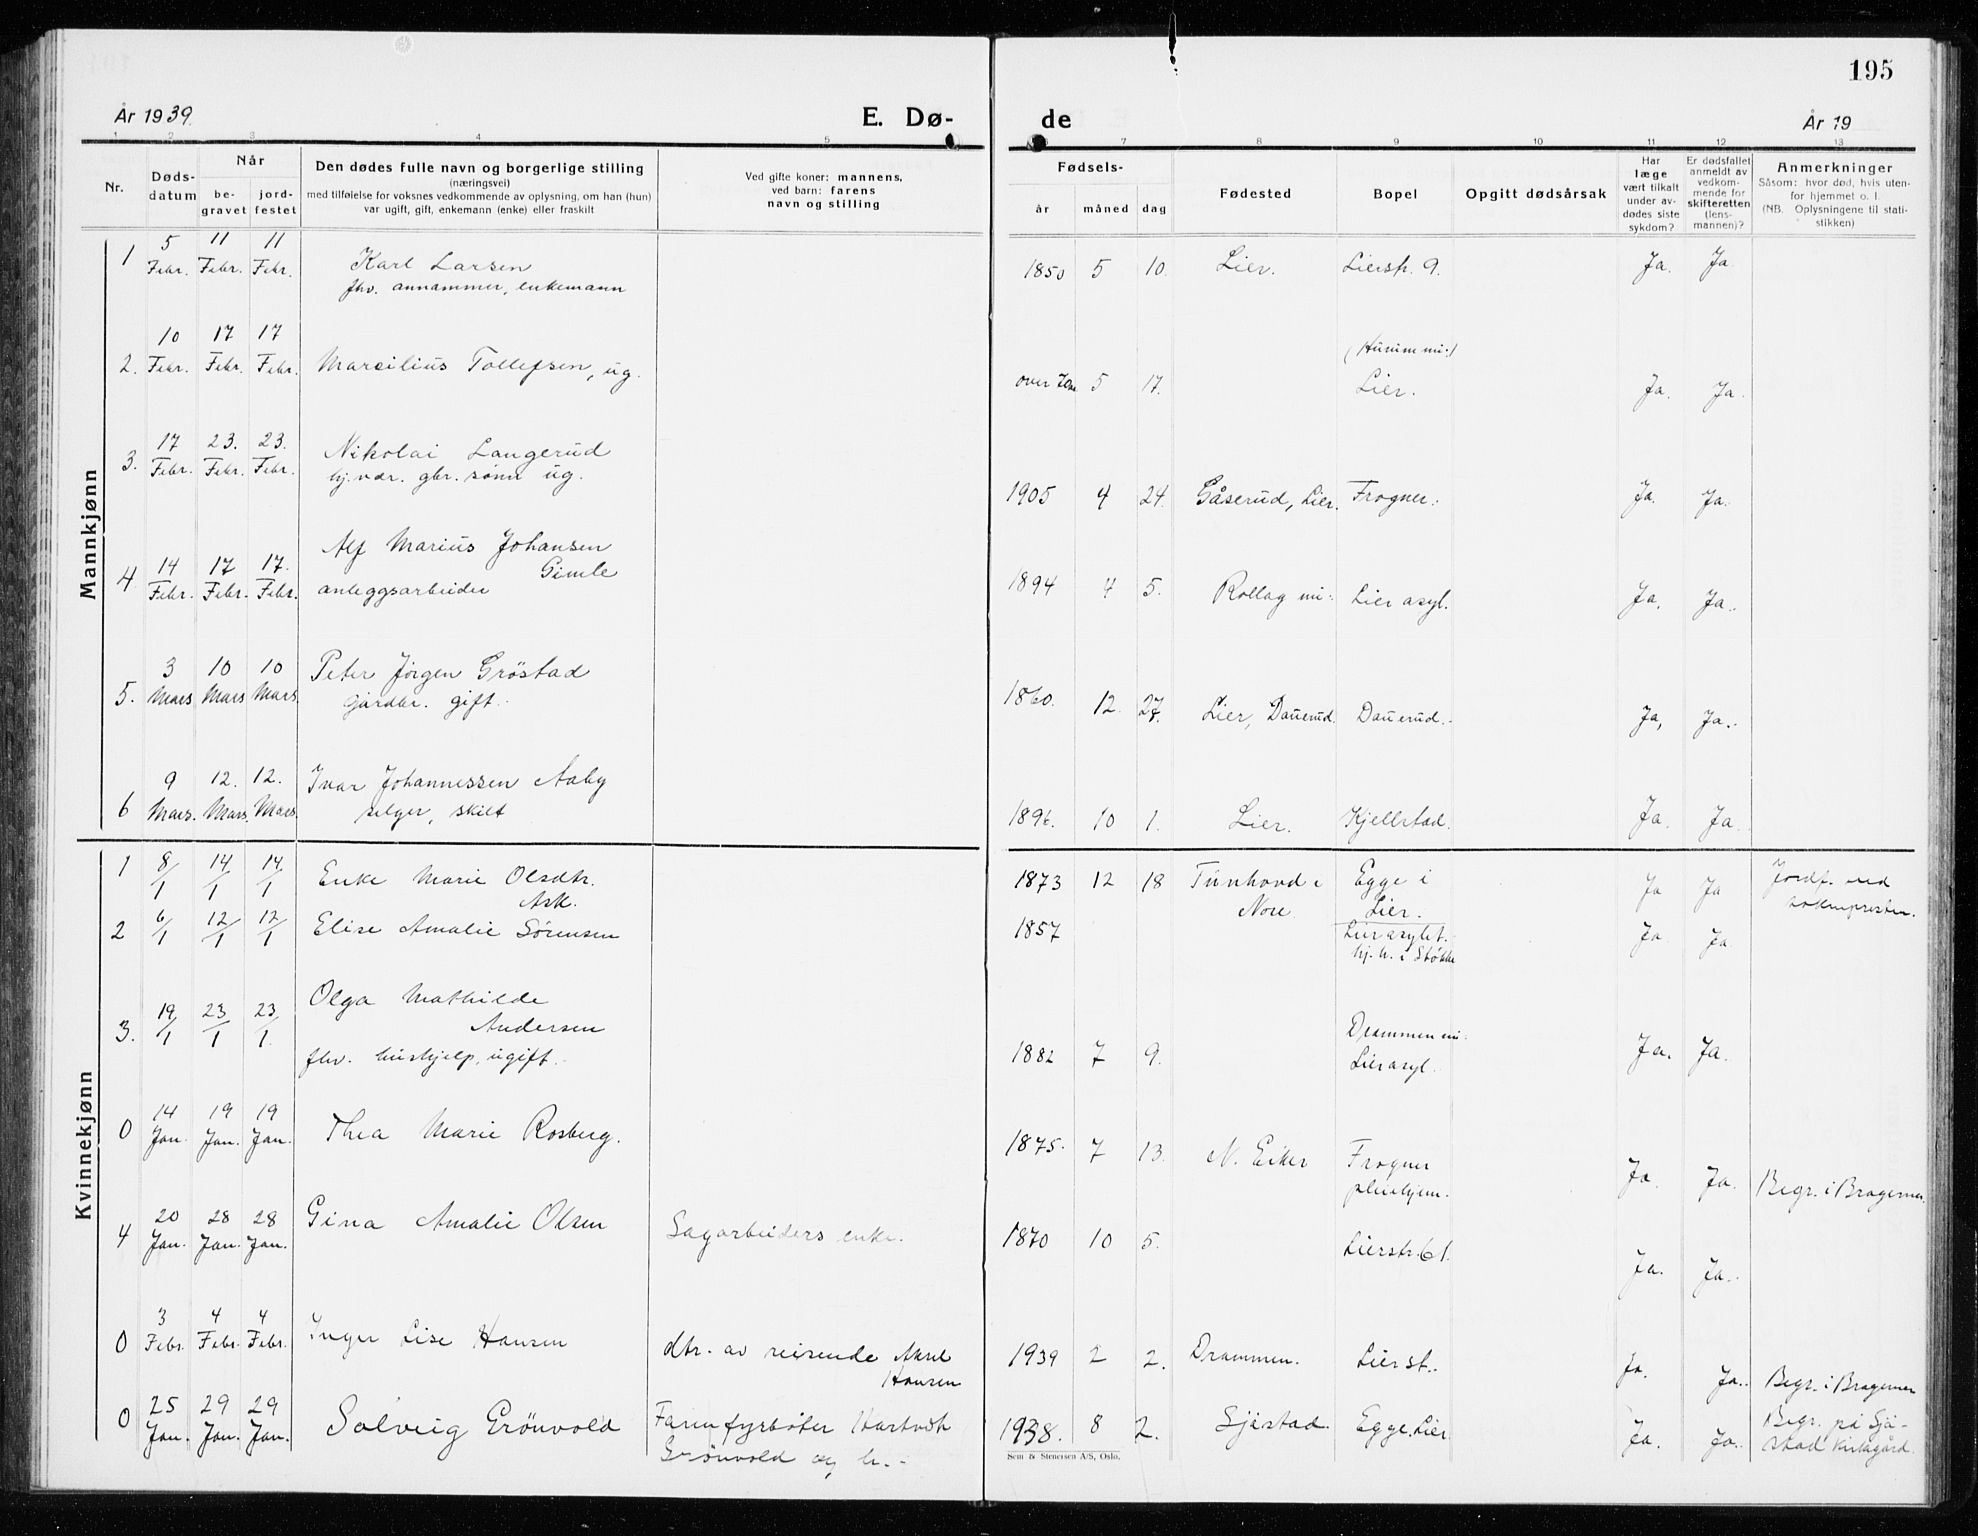 195
År 1939.
E. Dø-
de
År 19
1 2 3 4 5 6 7 8 9 10 11 12 13
Nr.
Døds-
datum
Når
be-
gravet
jord-
festet
Den dødes fulle navn og borgerlige stilling
(næringsvei)
med tilføielse for voksnes vedkommende av oplysning, om han (hun)
var ugift, gift, enkemann (enke) eller fraskilt
Ved gifte koner: mannens,
ved barn: farens
navn og stilling
Fødsels-
år måned dag
Fødested
Bopel
Opgitt dødsårsak
Har
læge
vært tilkalt
under av-
dødes siste
sykdom?
Er dødsfallet
anmeldt av
vedkom-
mende for
skifteretten
(lens-
mannen)?
Anmerkninger
Såsom: hvor død, hvis uten-
for hjemmet o. l.
(NB. Oplysningene til stati-
stikken)
Mannkjønn
1 5 Febr. 11 Febr. 11 Febr. Karl Larsen 1850 5 10. Lier. Lierstr. 9. Ja. Ja.
fhv. annammer, enkemann
(Hurum mi:)
2. 10 Febr. 17 Febr. 17 Febr. Marcilius Tollefsen, ug. over 70 år 5 17. Lier. Ja. Ja.
3. 17 Febr. 23. Febr. 23. Febr. Nikolai Langerud 1905 4 24. Gåserud, Lier. Frogner. Ja. Ja.
hj. vær. gbr. sønn ug.
4 14 Febr. 17 Febr. 17. Febr. Alf Marius Johansen 1894 4 5. Rollag mi: Lier asyl. Ja, Ja.
Gimle
anleggsarbeider
5. 3 Mars 10 Mars 10 Mars. Peter Jørgen Gröstad 1860. 12. 27. Lier, Dauerud. Dauerud. Ja, Ja.
gårdbr. gift.
6 9 Mars. 12. Mars. 12. Mars. Ivar Johannessen Aaby 1896. 10 1. Lier. Kjellstad. Ja. Ja.
selger, skilt
Kvinnekjønn
1 8/1 14/1 14/1 Enke Marie Olsdtr. 1873 12 18 Tunhovd i Egge i Ja Ja Jordf. ved
Ask. Nore. Lier. sokneprosten.
2 6/1 12/1 12/1 Elise Amalie Sørensen 1857 Lier asylet. Ja. Ja.
hj. h. i Stokke
3. 19/1 23/1 23/1. Olga Mathilde Drammen mi:
Andersen 1882 7 9. Lier asyl. Ja. Ja.
fhv. hushjelp, ugift.
0 14 Jan. 19 Jan. 19 Jan. Thea Marie Rosberg. 1875. 7 13. N. Eiker Frogner Ja. Ja. Begr. i Bragernes.
pleiehjem.
4 20 Jan. 28 Jan. 28 Jan. Gina Amalie Olsen Sagarbeiders enke. 1870 10 5. Lierstr. 61. Ja. Ja.
0 3 Febr. 4 Febr. 4 Febr. Inger Lise Hansen dtr. av reisende Aksel 1939 2 2. Drammen. Lierst. Ja. Ja. Begr. i Bragernes
Hansen
0 25 Jan. 29 Jan. 29 Jan. Solveig Grönvold Faren fyrbøter Hartvik 1938. 8 2. Sjåstad. Egge, Lier Ja. Ja. Begr. på Sjå-
Grönvold og h. stad kirkegård.
Sem & Stenersen A/S, Oslo.